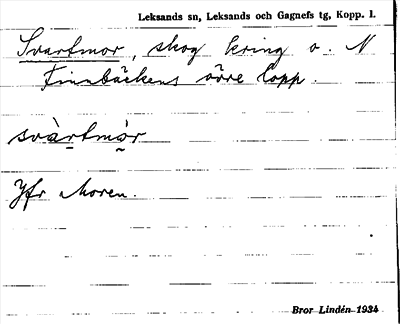 Leksands sn, Leksands och Gagnefs tg, Kopp. l.
Svartmor, skog kring o. N
Finnbäckens övre lopp.
svàrtmòr
Jfr Moren.
Bror Lindén 1934